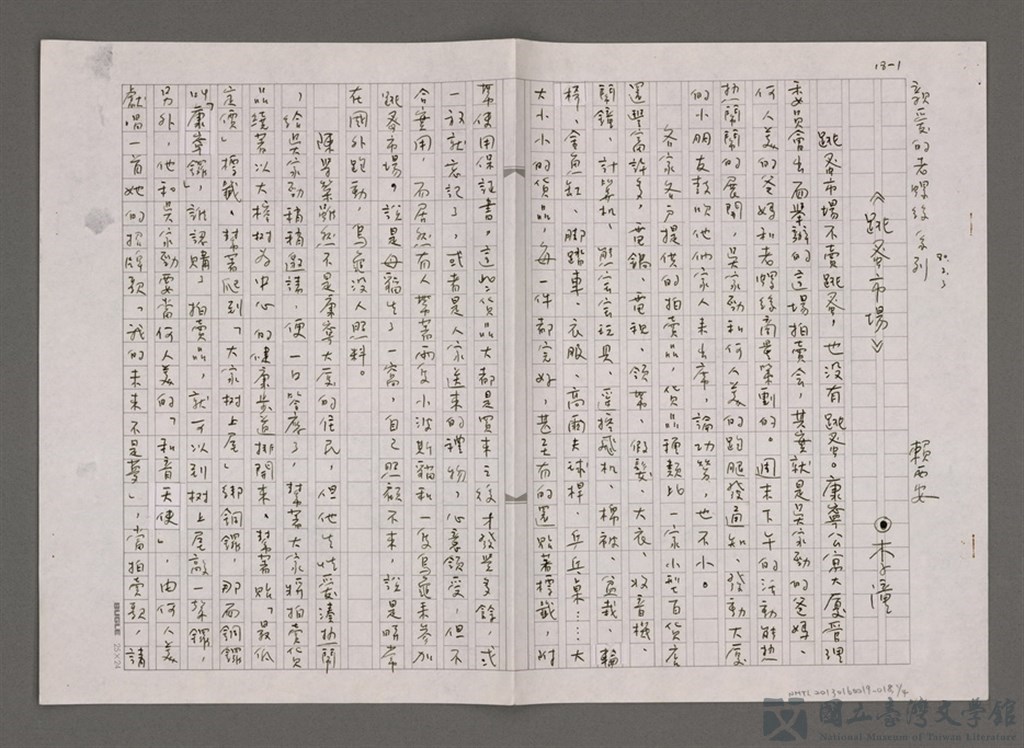 18-1
親愛的老蝴蝶系列
《跳蚤市場》
賴西安
⊙李潼
跳蚤市場不賣跳蚤，也沒有跳蚤。康寧公寓大廈管理
委員會出面舉辦的這場拍賣會，其實就是吳家勁的爸媽、
何人美的爸媽和老蝴蝶商量策劃的。週末下午的活動能熱
熱鬧鬧的展開，吳家勁和何人美的跑腿發通知、發動大廈
的小朋友鼓吹他們家人來出席，論功勞，也不小。
各家各戶提供的拍賣品，貨品種類比一家小型百貨店
還豐富許多，電鍋、電視、領帶、假髮、大衣、收音機、
鬧鐘、計算机、熊寶寶玩具、遙控飛机、棉被、盆栽、輪
椅、金魚缸、腳踏車、衣服、高爾夫球桿、乒乓桌……大
大小小的貨品，每一件都完好，甚至有的還貼著標籤，附
帶使用保証書。這些貨品大都是買來之後才發覺多餘，或
一放就忘記了，或者是人家送來的禮物，心意領受，但不
合實用，而居然有人帶著兩隻小波斯貓和一隻烏龜來參加
跳蚤市場。說是母貓生了一窩，自己照顧不來，說是時常
在國外跑動，烏龜沒人照料。
陳學榮雖然不是康寧大廈的住民，但他生性愛湊熱鬧
，給吳家勁稍稍邀請，便一口答應了，幫著大家將拍賣貨
品繞著以大榕樹為中心的健康步道排開來。幫著貼「最低
定價」標籤、幫著爬到「大家樹上尾」綁銅鑼，那面銅鑼
叫「康寧鑼」，誰認購了拍賣品，就可以到樹上尾敲一聲鑼，
另外，他和吳家勁要當何人美的「和音天使」，由何人美
獻唱一首她的招牌歌「我的未來不是夢」，當拍賣歌，請
BUGLE 25×24
NMTL20130160019-018 1/4
國立臺灣文學館
National Museum of Taiwan Literature